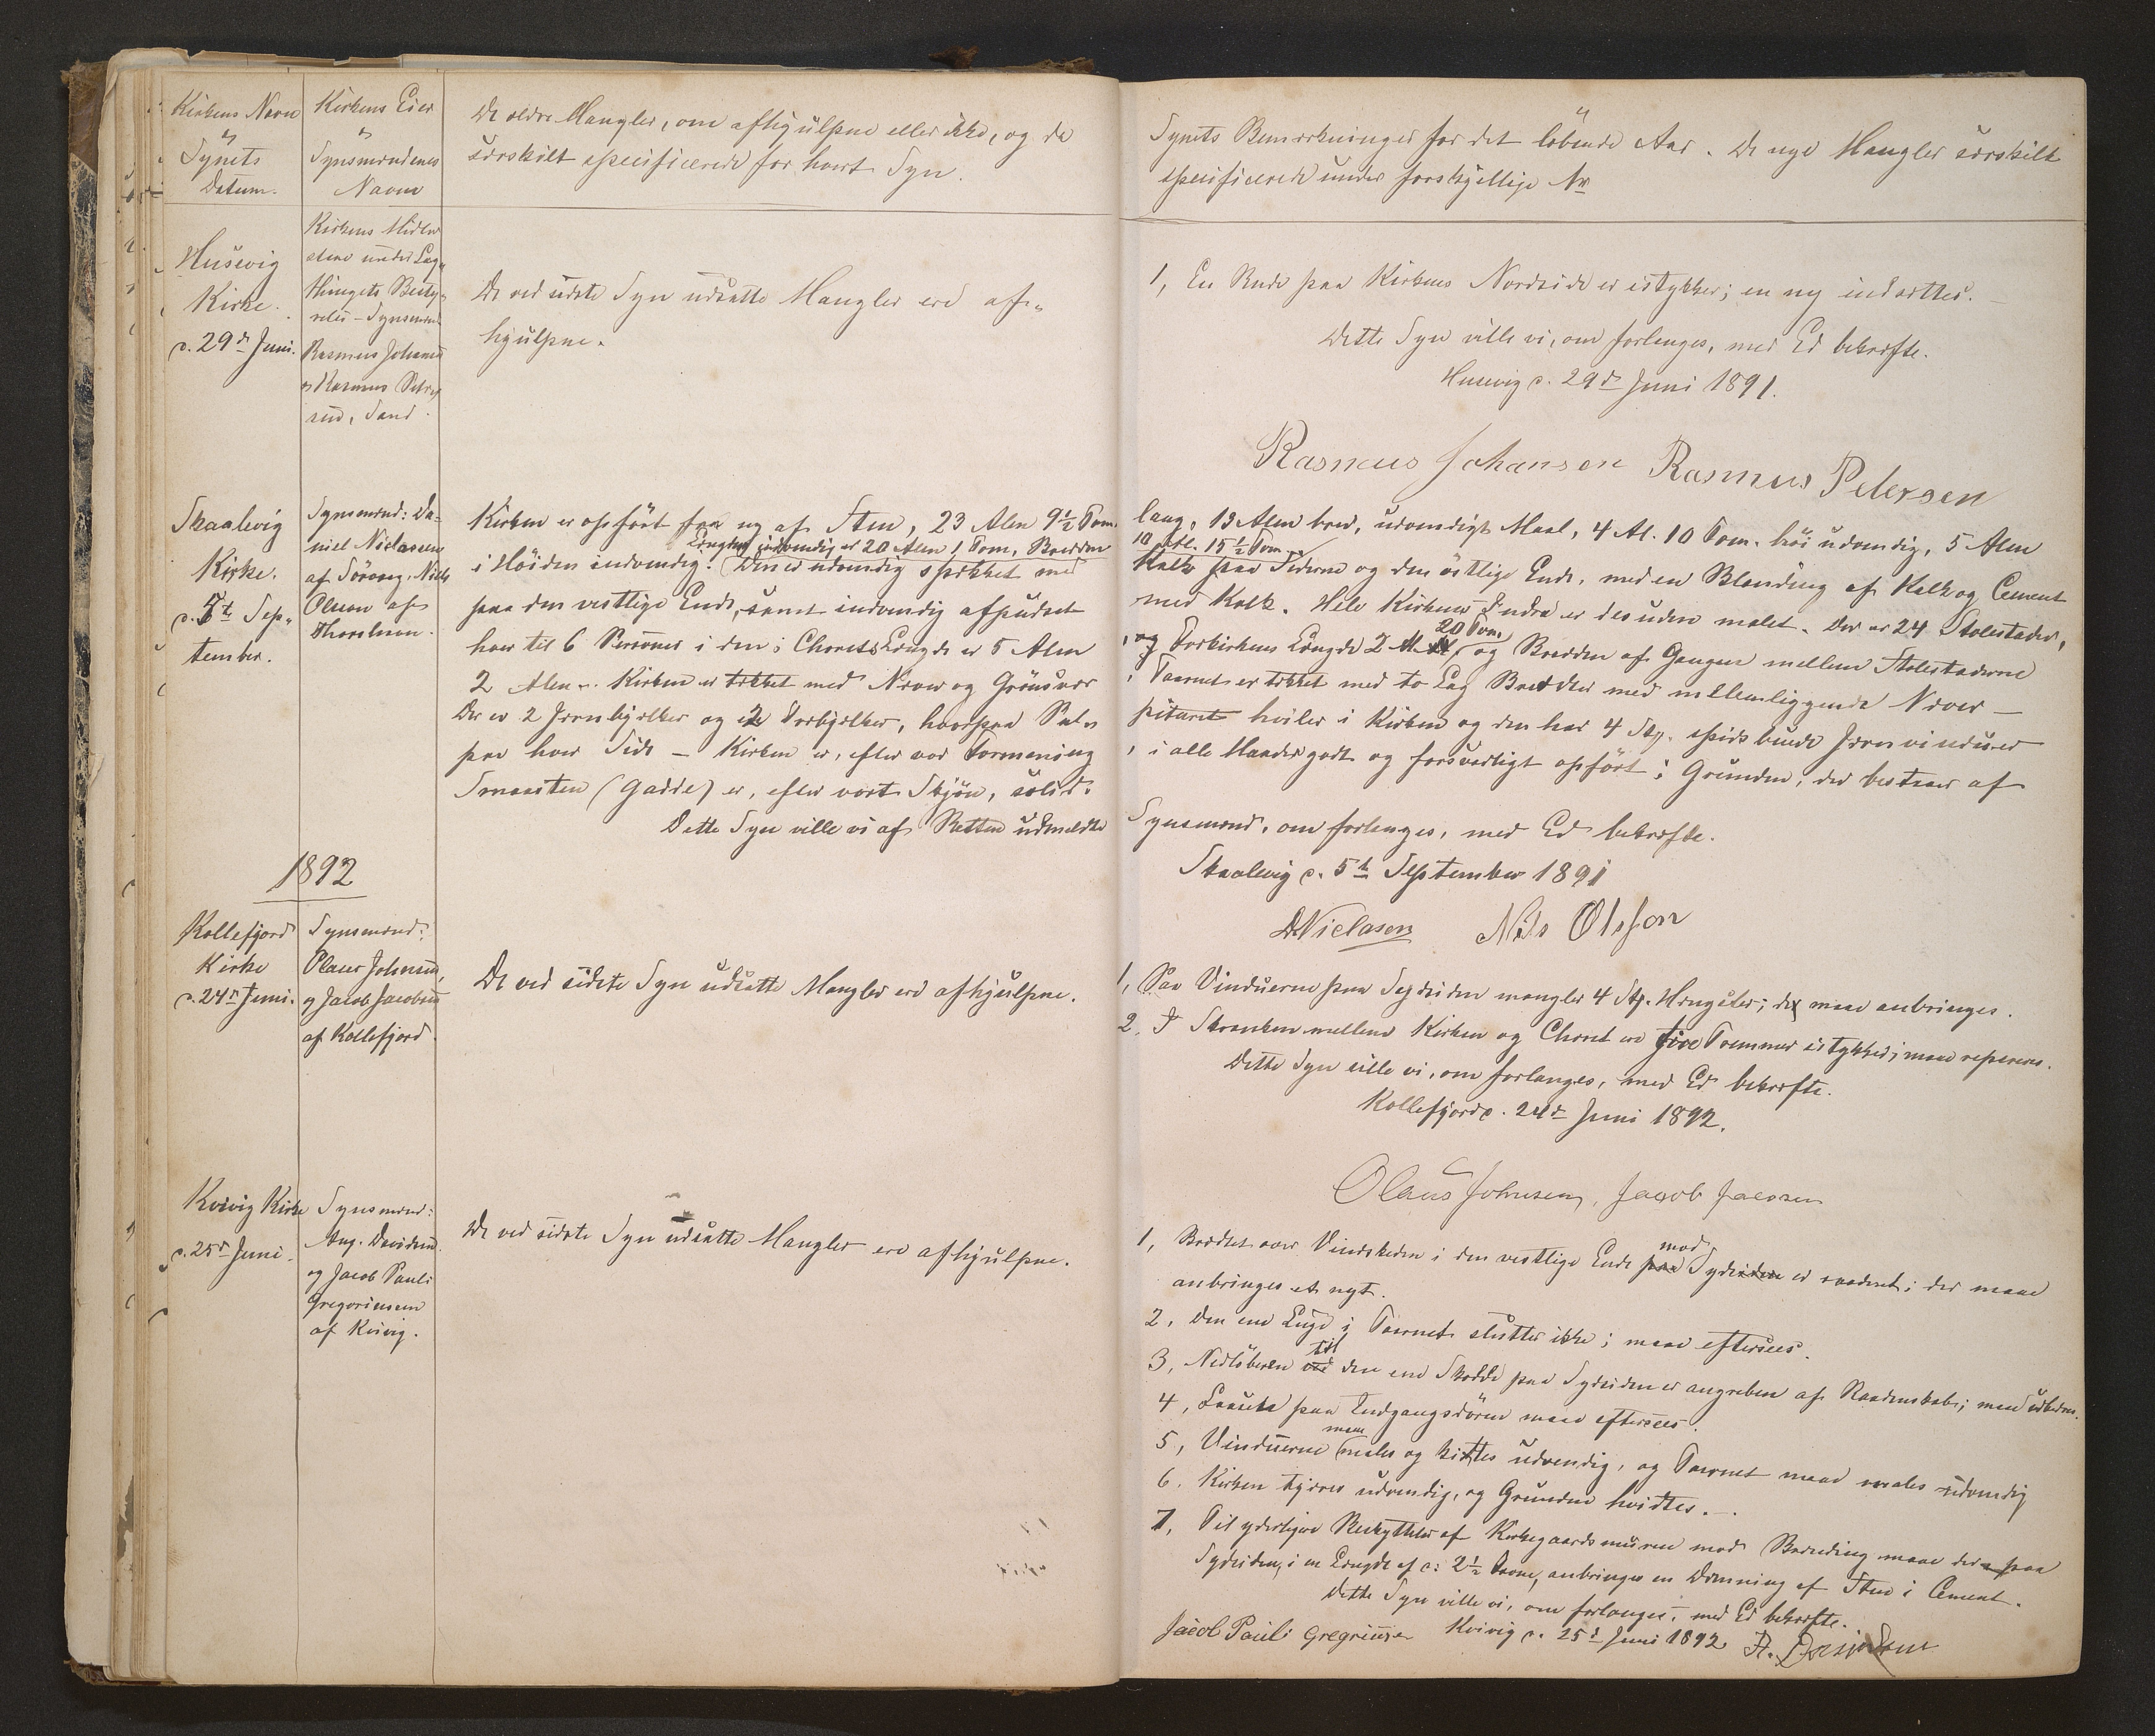 Kirkens Navn
og
Synets
Datum.
Kirkens Eier
og
Synsmændenes
Navne
De ældre Mangler, om afhjulpne eller ikke, og de
særskilt specificerede for hvert Syn.
Synets Bemærkninger for det löbende Aar. De nye Mangler særskilt
specificerede under forskjellige Nr
Husevig
Kirke.
d. 29de Juni.
Kirkens Midler
staae under Lag-
thingets Besty-
relse - Synsmænd
Rasmus Johansen
og Rasmus Peter-
sen, Sand.
De ved sidste Syn udsatte Mangler ere af-
hjulpne.
1, En Rude paa Kirkens Nordside er istykker; en ny indsættes. -
Dette Syn ville vi, om forlanges, med Ed bekræfte.
Husevig d. 29de Juni 1891.
Rasmus Johansen Rasmus Petersen
Skaalevig
Kirke.
d. 5te Sep-
tember.
Synsmænd: Da-
niel Niclassen
af Sörvaag, Niels
Olsson af
Thorshavn.
Kirken er opfört fra ny af Sten, 23 Alen 9½ Tom.
lang, 13 Alen bred, udvendigt Maal, 4 Al. 10 Tom. höi udvendig, 5 Alen
Længden indvendig er 20 Alen 1 Tom, Bredden
10 Al. 15½ Tom.
i Höiden indvendig. Den er udvendig spækket med
Kalk paa Siderne og den östlige Ende, med en Blanding af Kalk og Cement
paa den vestlige Ende, samt indvendig afpudset
med Kalk. Hele Kirkens Indre er desuden malet. Der er 24 Stolestader,
hver til 6 Personer i den; Chorets Længde er 5 Alen
20 Tom.
og Forkirkens Længde 2 Al. og Bredden af Gangen mellem Stolestaderne
2 Alen. Kirken er tækket med Næver og Grönsvær
, Taarnet er tækket med to Lag Brædder med mellemliggende Næver -
Der er 2 Jernbjælker og 2 Træbjælker, hvorpaa Pul-
pituret hviler i Kirken og den har 4 Stk. spidsbuede Jernvinduer
paa hver Side - Kirken er, efter vor Formening
, i alle Maader godt og forsvarligt opfört; Grunden, der bestaaer af
Smaasten (Gadde) er, efter vort Skjön, solid.
Dette Syn ville vi af Retten udmeldte
Synsmænd, om forlanges, med Ed bekræfte.
Skaalevig d. 5te September 1891
DNiclasen Niels Olsson
1892
Kollefjord
Kirke
d. 24de Juni.
Synsmænd:
Olaus Johnsen,
og Jacob Jacobsen
af Kollefjord.
De ved sidste Syn udsatte Mangler ere afhjulpne.
1, Paa Vinduerne paa Sydsiden mangler 4 Stk. Hængsler; de maae anbringes.
2, I Skranken mellem Kirken og Choret ere fire Tremmer istykker; maae repareres.
Dette Syn ville vi, om forlanges, med Ed bekræfte.
Kollefjord d. 24de Juni 1892.
Olaus Johnsen, Jacob Jacobsen
Kvivig Kirke
d. 25de Juni.
Synsmænd:
Aug. Davidsen
og Jacob Pauli
Gregoriussen
af Kvivig.
De ved sidste Syn udsatte Mangler ere afhjulpne.
mod
1, Brædtet over Vindskeden i den vestlige Ende paa Sydsiden er raadent; der maae
anbringes et nyt.
2, Den ene Luge i Taarnet slutter ikke; maae eftersees.
til
3, Nedlöberen ved den ene Skodde paa Sydsiden er angreben af Raadenskab; maae udbedres.
4, Laasen paa Indgangsdören maae eftersees.
maae
5, Vinduerne males og kittes udvendig, og Taarnet maae males udvendig
6. Kirken tjæres udvendig, og Grunden hvidtes. -
7, Til yderligere Beskyttelse af Kirkegaardsmuren mod Brænding maae der paa
Sydsiden, i en Længde af c: 2½ Favne, anbringes en Dæmning af Sten i Cement.
Dette Syn ville vi, om forlanges, med Ed bekræfte.
Jacob Pauli Gregriusen Kvivig d. 25de Juni 1892 A. Davidsen